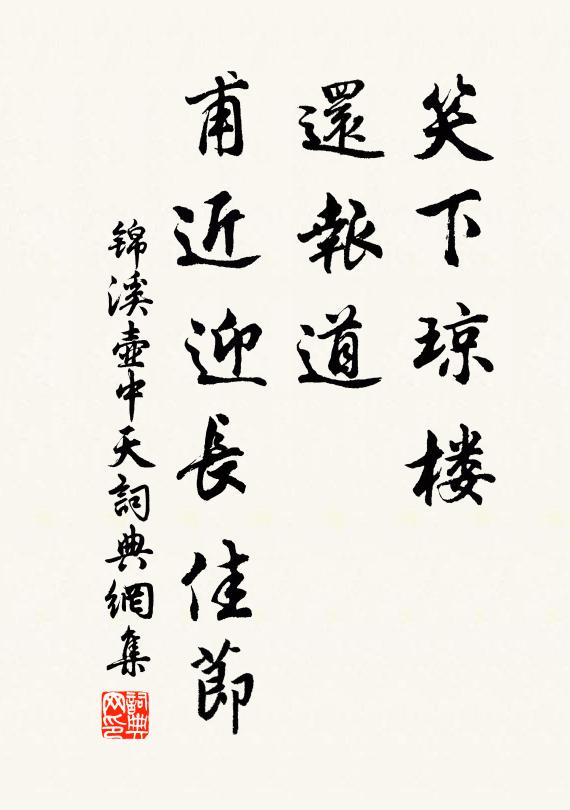 笑下琼楼
還報道
甫近迎長佳節
锦溪壺中天詞典網集
詞典网印